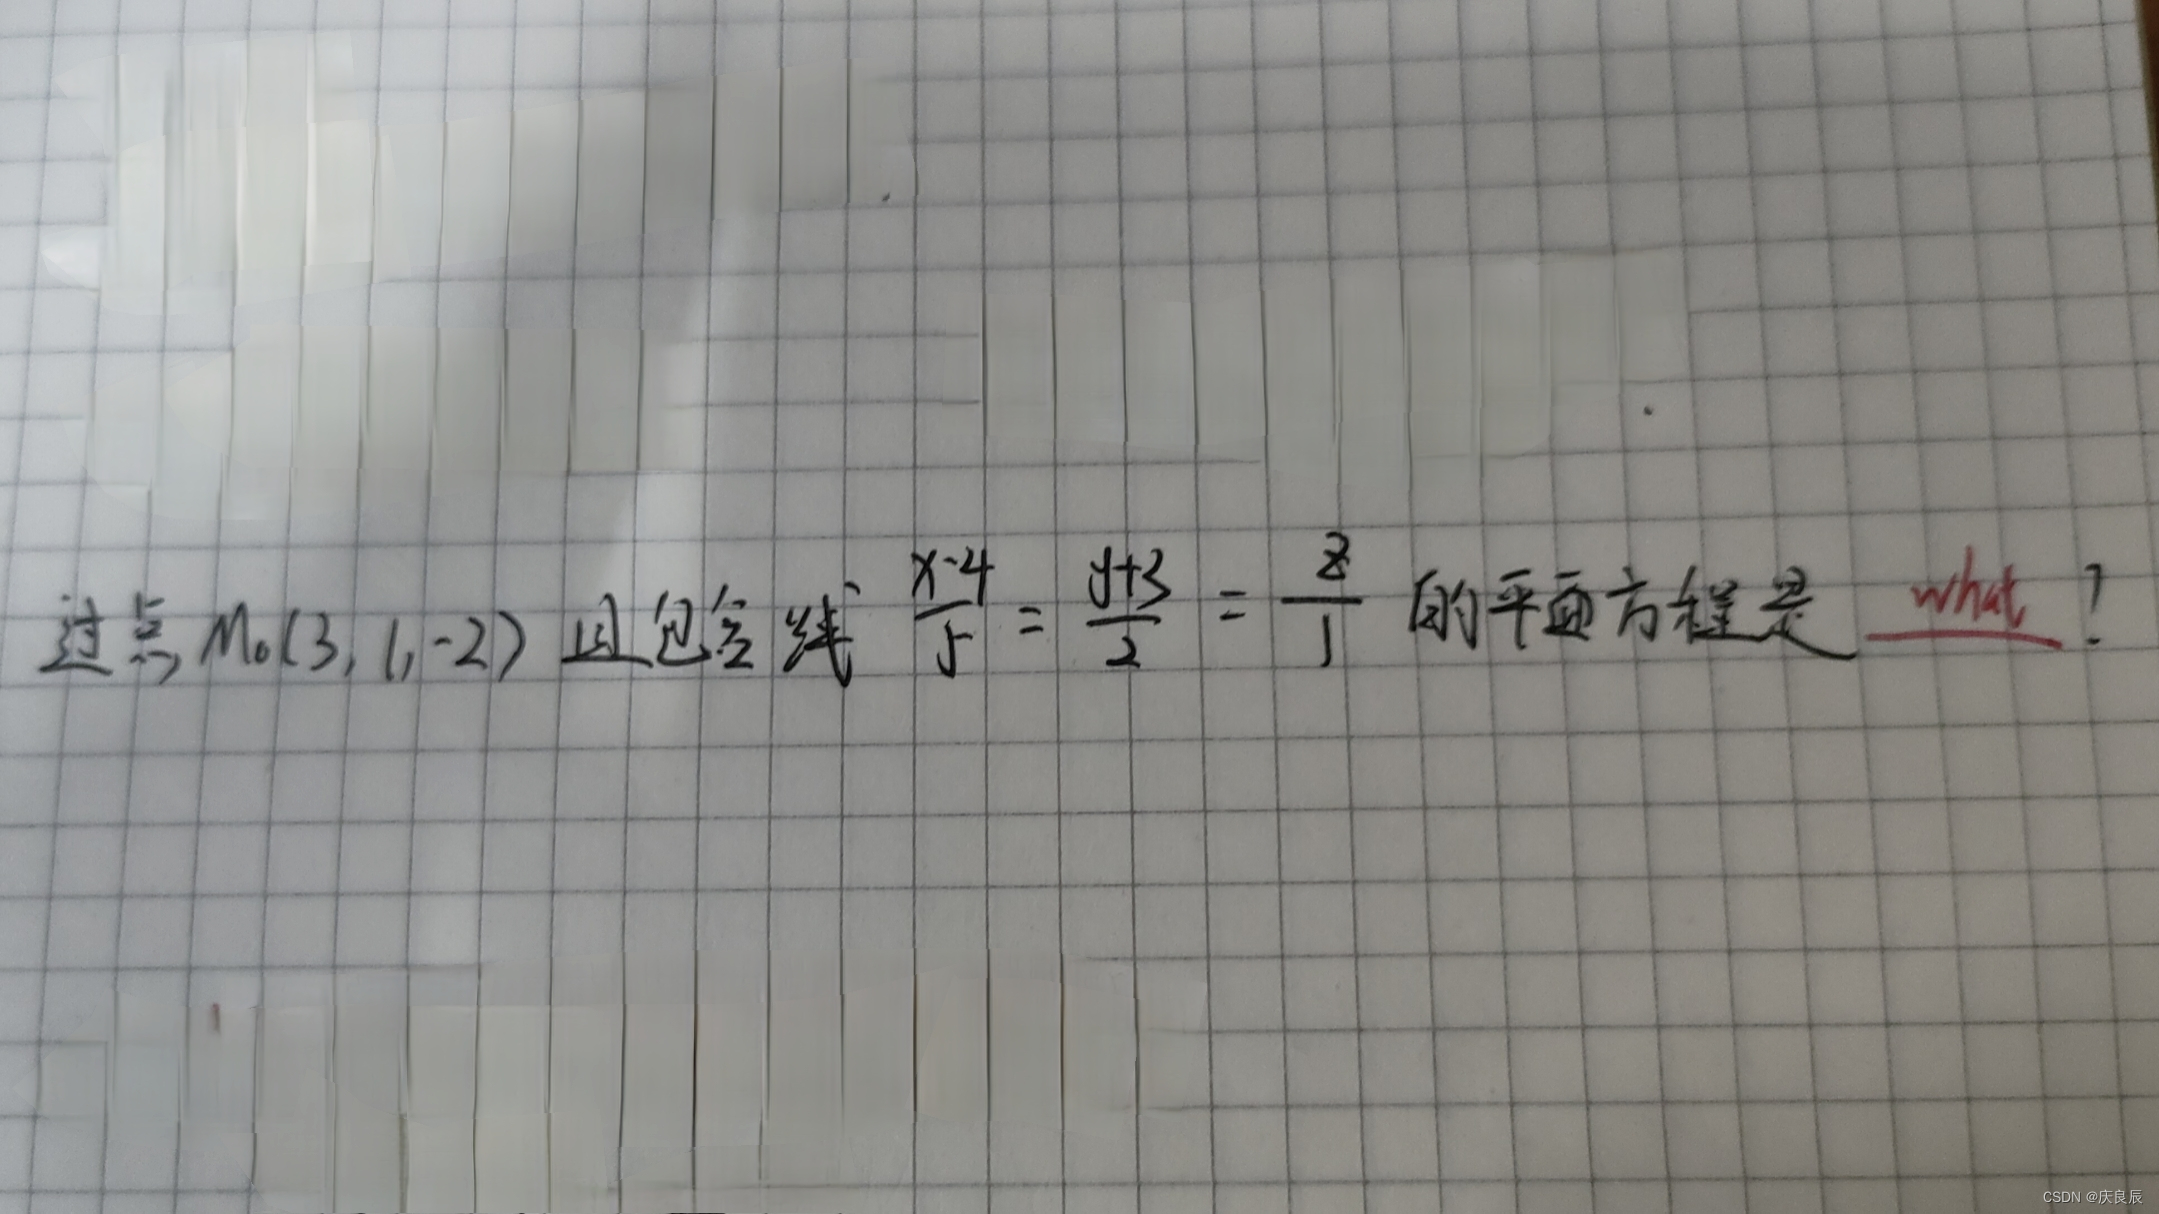 过点 M₀(3, 1, -2) 且包含线 (x-4)/5 = (y+3)/2 = z/1 的平面方程是 what ?
CSDN @庆良辰